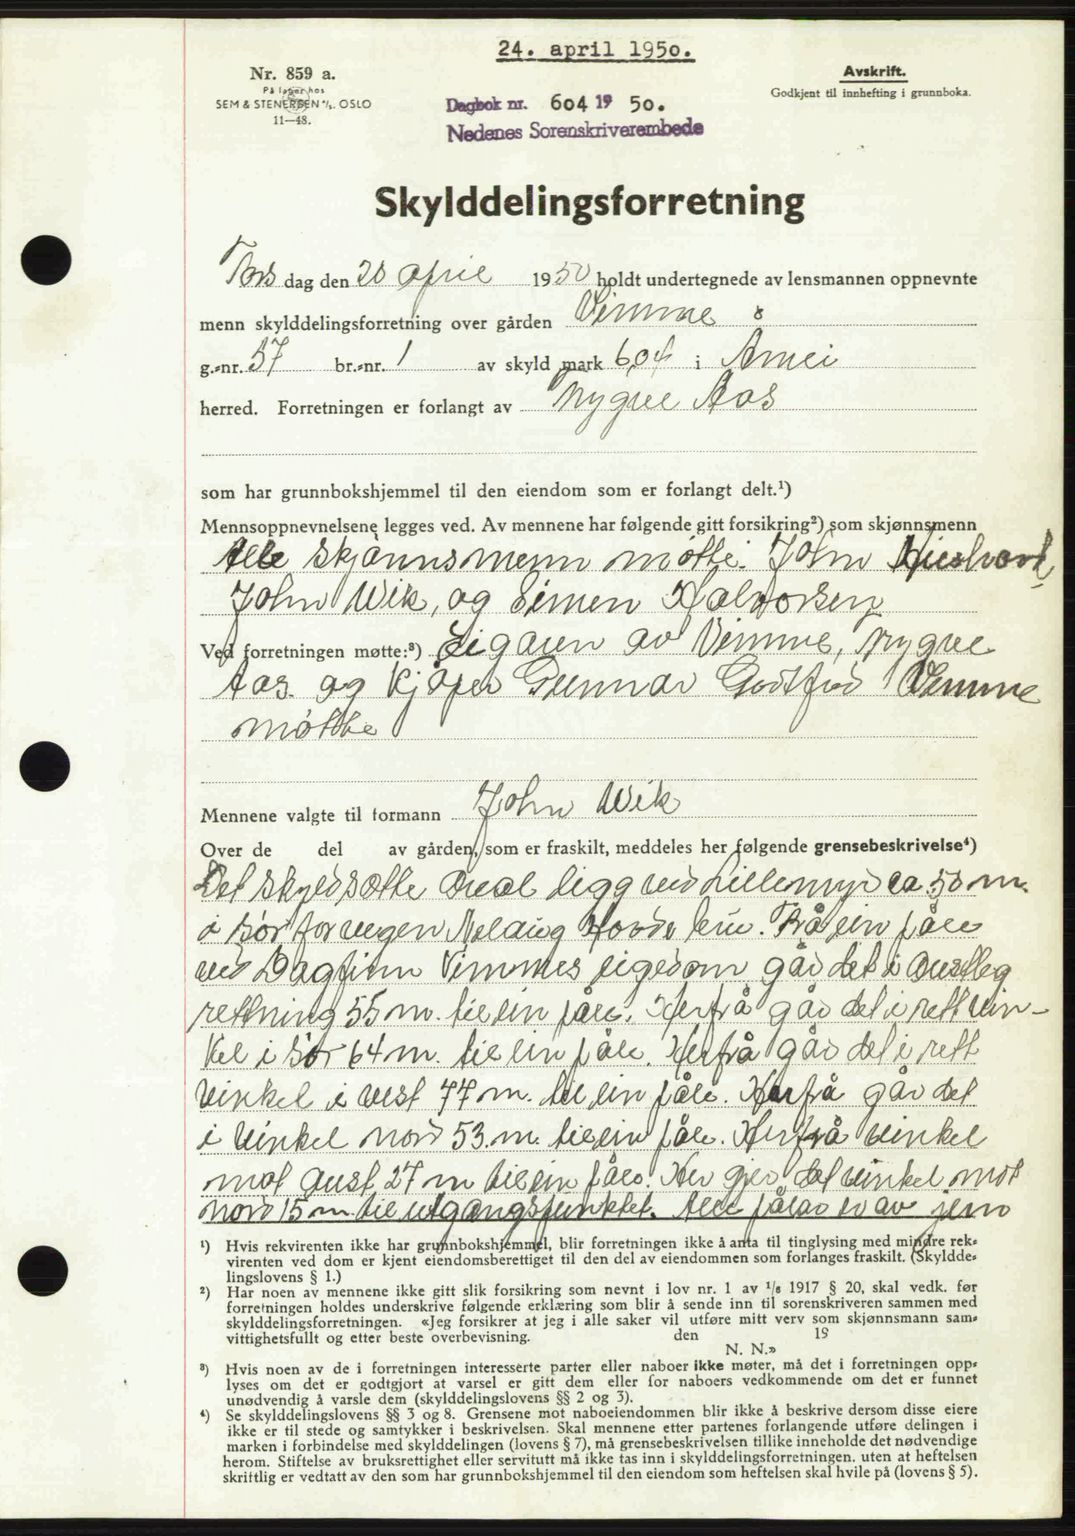 24. april 1950.
Nr. 859 a.
På lager hos
SEM & STENERSEN A/S. OSLO
11—48.
Avskrift.
Godkjent til innhefting i grunnboka.
Dagbok nr. 604 19 50.
Nedenes Sorenskriverembede
Skylddelingsforretning
Tors dag den 20 april 1950 holdt undertegnede av lensmannen oppnevnte
menn skylddelingsforretning over gården Vimme
g.-nr. 57 br.-nr. 1 av skyld mark 6,04 i Åmli
herred. Forretningen er forlangt av Trygve Aas
som har grunnbokshjemmel til den eiendom som er forlangt delt.¹)
Mennsoppnevnelsene legges ved. Av mennene har følgende gitt forsikring²) som skjønnsmenn
Alle skjønnsmenn møtte. John
John Wik, og Simen Halvorsen
Ved forretningen møtte:³) Eigaren av Vimme, Trygve
Aas og kjøper Gunnar Godtfred Vimme
møtte
Mennene valgte til formann John Wik
Over de del av gården, som er fraskilt, meddeles her følgende grensebeskrivelse⁴)
Det skyldsatte areal ligg ved Lillemyr ca 50 m.
i sør for vegen Nelaug lin. Frå ein påle
ved Dagfinn Vimmes eigedom går det i austleg
rettning 55 m. til ein påle. Herfrå går det i rett vin-
kel i sør 64 m. til ein påle. Herfrå går det i rett
vinkel i vest 77 m. til ein påle. Herfrå går det
i vinkel nord 53 m. til ein påle. Herfrå vinkel
mot aust 27 m til ein påle. Her gjer det vinkel mot
nord 15 m til utgangspunktet. Alle pålar er av jern
¹) Hvis rekvirenten ikke har grunnbokshjemmel, blir forretningen ikke å anta til tinglysing med mindre rek-
virenten ved dom er kjent eiendomsberettiget til den del av eiendommen som forlanges fraskilt. (Skyldde-
lingslovens § 1.)
²) Har noen av mennene ikke gitt slik forsikring som nevnt i lov nr. 1 av 1/8 1917 § 20, skal vedk. før
forretningen holdes underskrive følgende erklæring som blir å sende inn til sorenskriveren sammen med
skylddelingsforretningen. «Jeg forsikrer at jeg i alle saker vil utføre mitt verv som skjønnsmann sam-
vittighetsfullt og etter beste overbevisning. den 19
N. N.»
³) Hvis noen av de i forretningen interesserte parter eller naboer ikke møter, må det i forretningen opp-
lyses om det er godtgjort at varsel er gitt dem eller for naboers vedkommende om det er funnet
unødvendig å varsle dem (skylddelingslovens §§ 2 og 3).
⁴) Se skylddelingslovens §§ 3 og 8. Grensene mot naboeiendommen blir ikke å beskrive dersom disse eiere
ikke er til stede og samtykker i beskrivelsen. Skal mennene etter partenes forlangende utføre delingen i
marken i forbindelse med skylddelingen (lovens § 7), må grensebeskrivelsen tillike inneholde det nødvendige
herom. Stiftelse av bruksrettighet eller servitutt må ikke tas inn i skylddelingsforretningen. uten at heftelsen
skriftlig er vedtatt av den som har grunnbokshjemmel til den eiendom som heftelsen skal hvile på (lovens § 5).